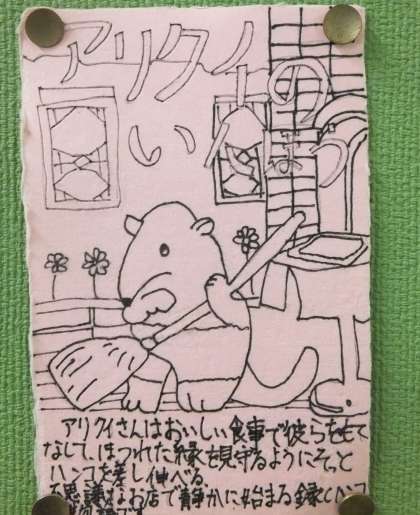 アリクイの
いんぼう
アリクイさんはおいしい食事で彼らをもて
なして、ほつれた縁を見守るようにそっと
ハンコを差し伸べる。
不思議なお店で静かに始まる縁とハンコ